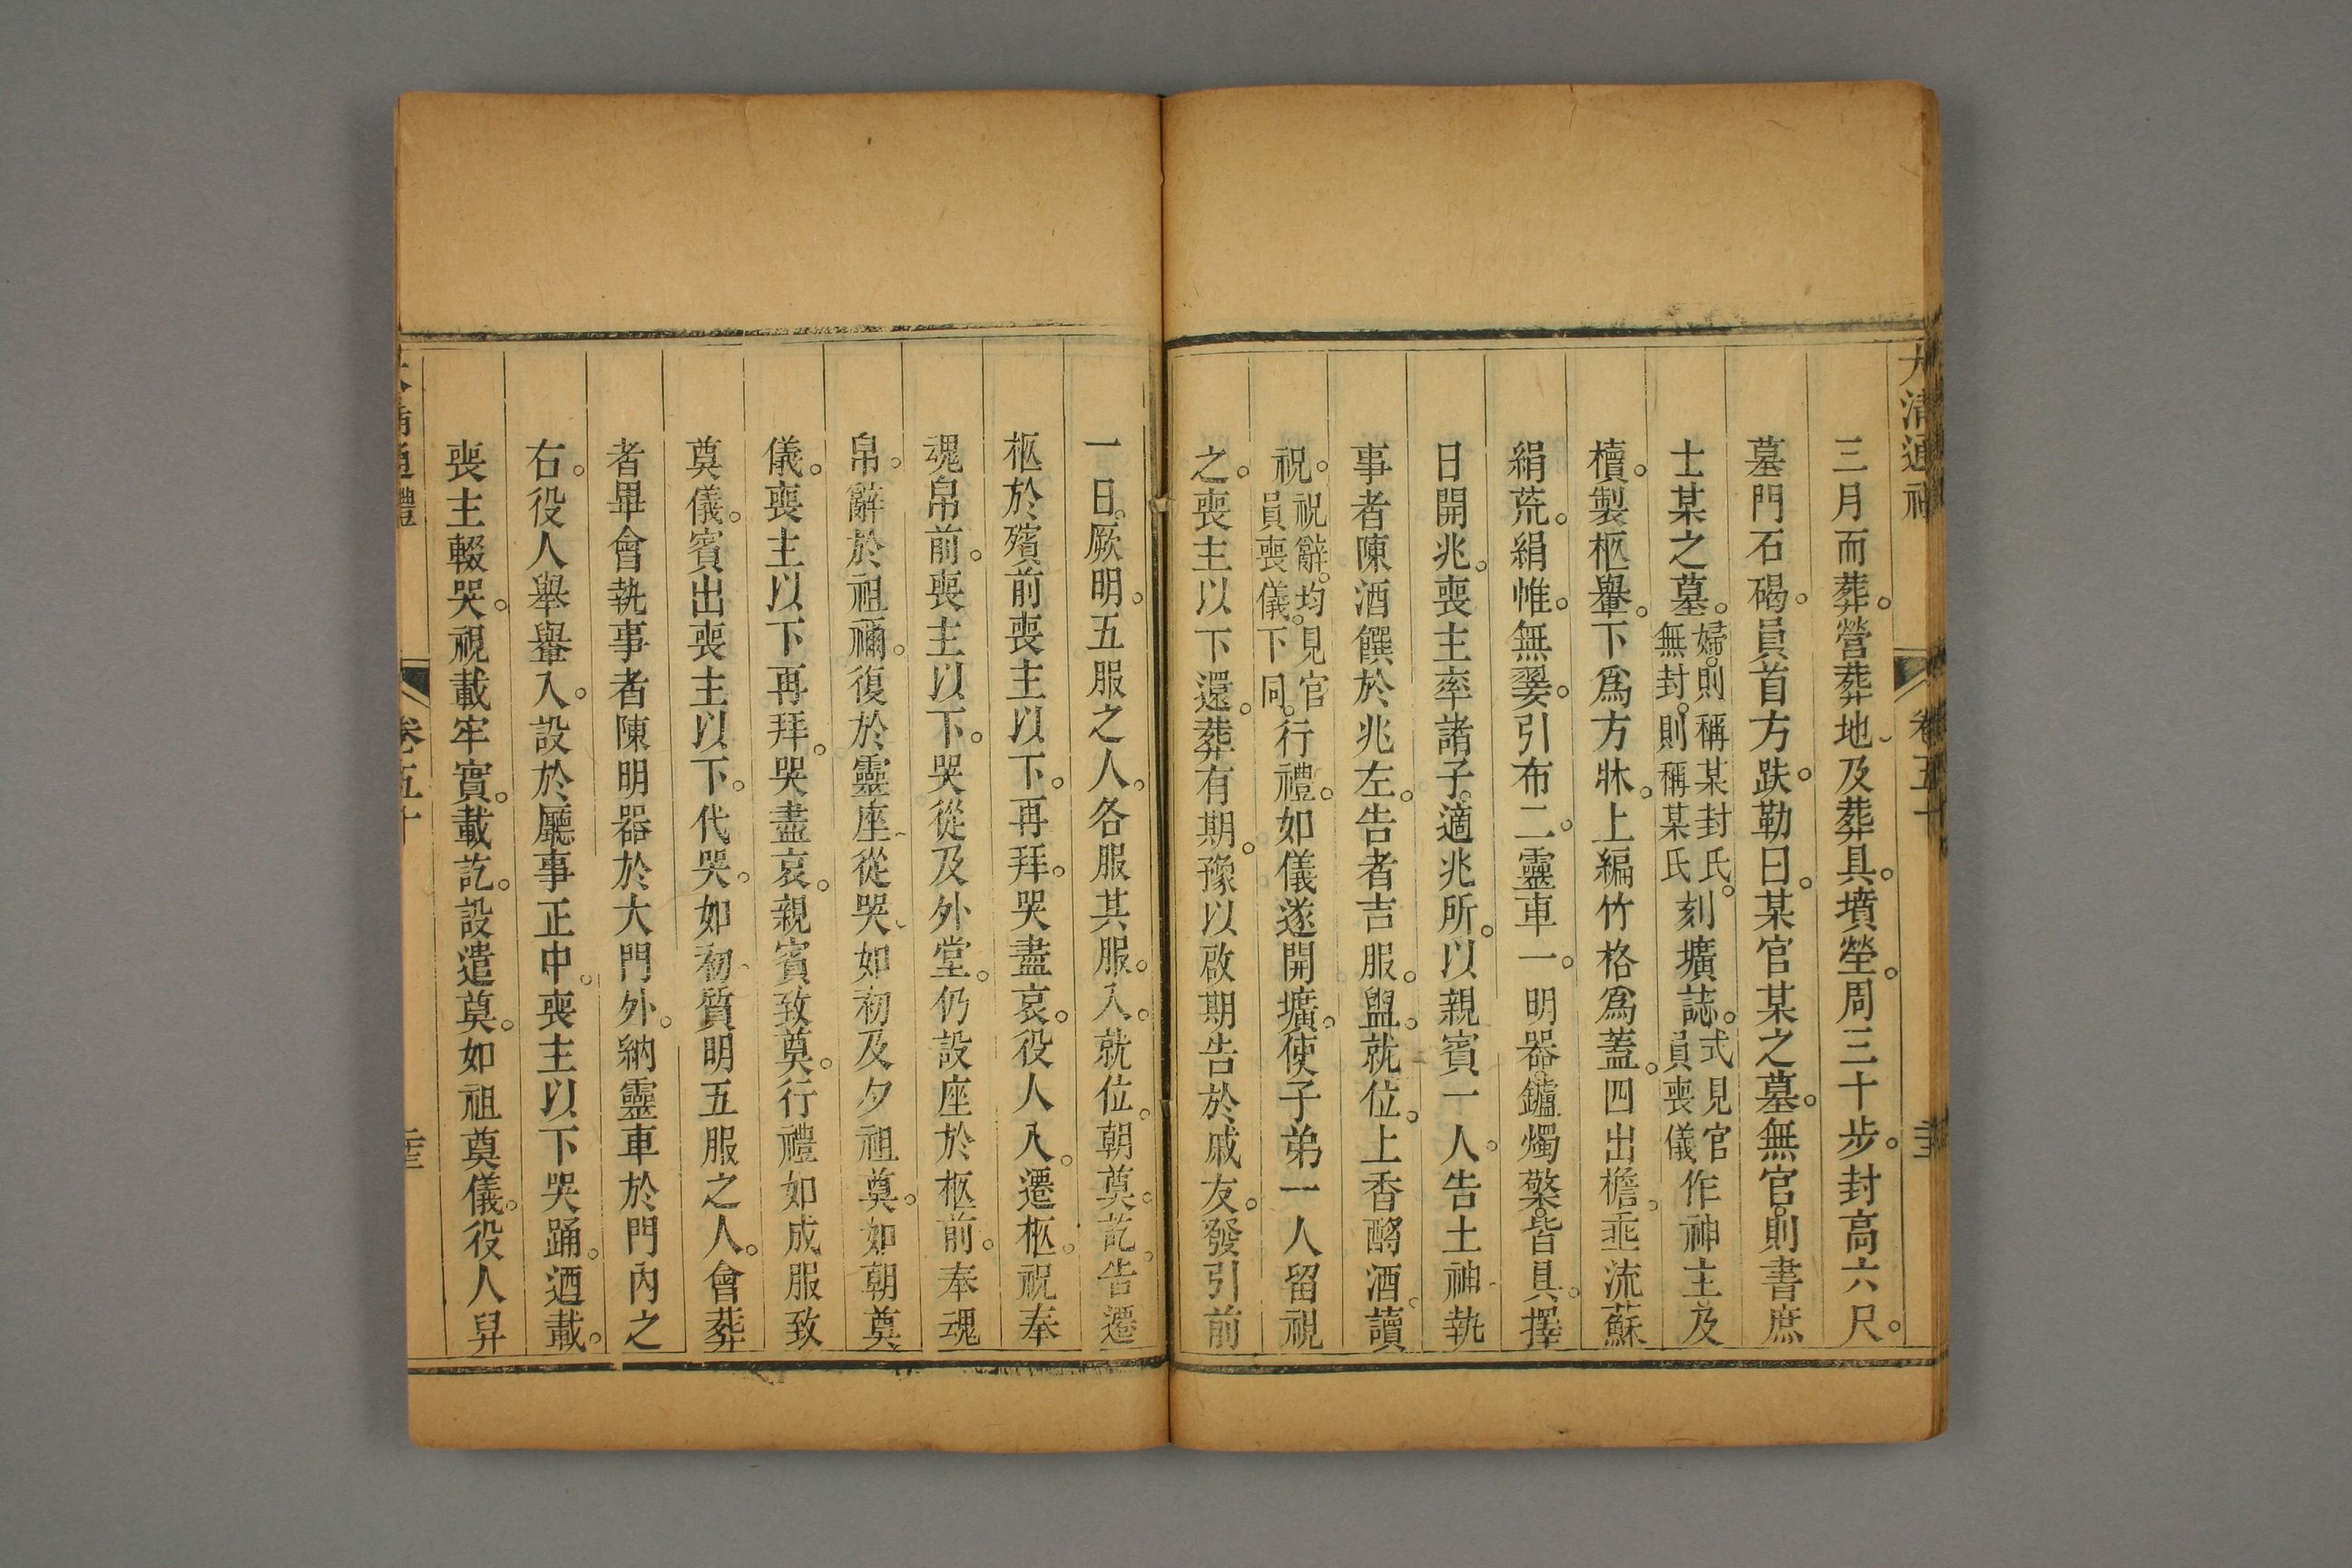 大清通禮
卷五十
三月而葬。營葬地、及葬具。墳塋。周三十步。封高六尺。
墓門石碣。員首方趺。勒曰。某官某之墓。無官。則書庶
士某之墓。婦。則稱某封氏。無封。則稱某氏。刻壙誌。式見官員喪儀作神主及
櫝。製柩轝。下爲方牀。上編竹格爲蓋。四出檐。垂流蘇
絹荒。絹帷。無翣。引布二。靈車一。明器。鑪燭檠。皆具。擇
日開兆。喪主率諸子。適兆所。以親賓一人。告土神、執
事者陳酒饌於兆左。告者吉服。盥。就位。上香酹酒。讀
祝。祝辭。均見官員喪儀。下同。行禮。如儀遂開壙。使子弟一人留視
之。喪主以下還。葬有期。豫以啟期告於戚友。發引前
一日。厥明。五服之人。各服其服。入。就位。朝奠。訖。告遷
柩於殯前喪主以下。再拜。哭盡哀。役人入。遷柩。祝奉
魂帛前。喪主以下。哭從及外堂。仍設座於柩前。奉魂
帛。辭於祖禰。復於靈座、從哭、如初及夕祖奠。如朝奠
儀。喪主以下再拜。哭盡哀。親賓致奠。行禮如成服致
奠儀。賓出喪主以下。代哭。如初、質明五服之人。會葬
者畢會執事者陳明器於大門外。納靈車於門內之
右。役人舉轝入。設於廳事正中。喪主以下哭踊。迺載。
喪主輟哭。視載牢實。載訖。設遣奠。如祖奠儀。役人舁
卷五十